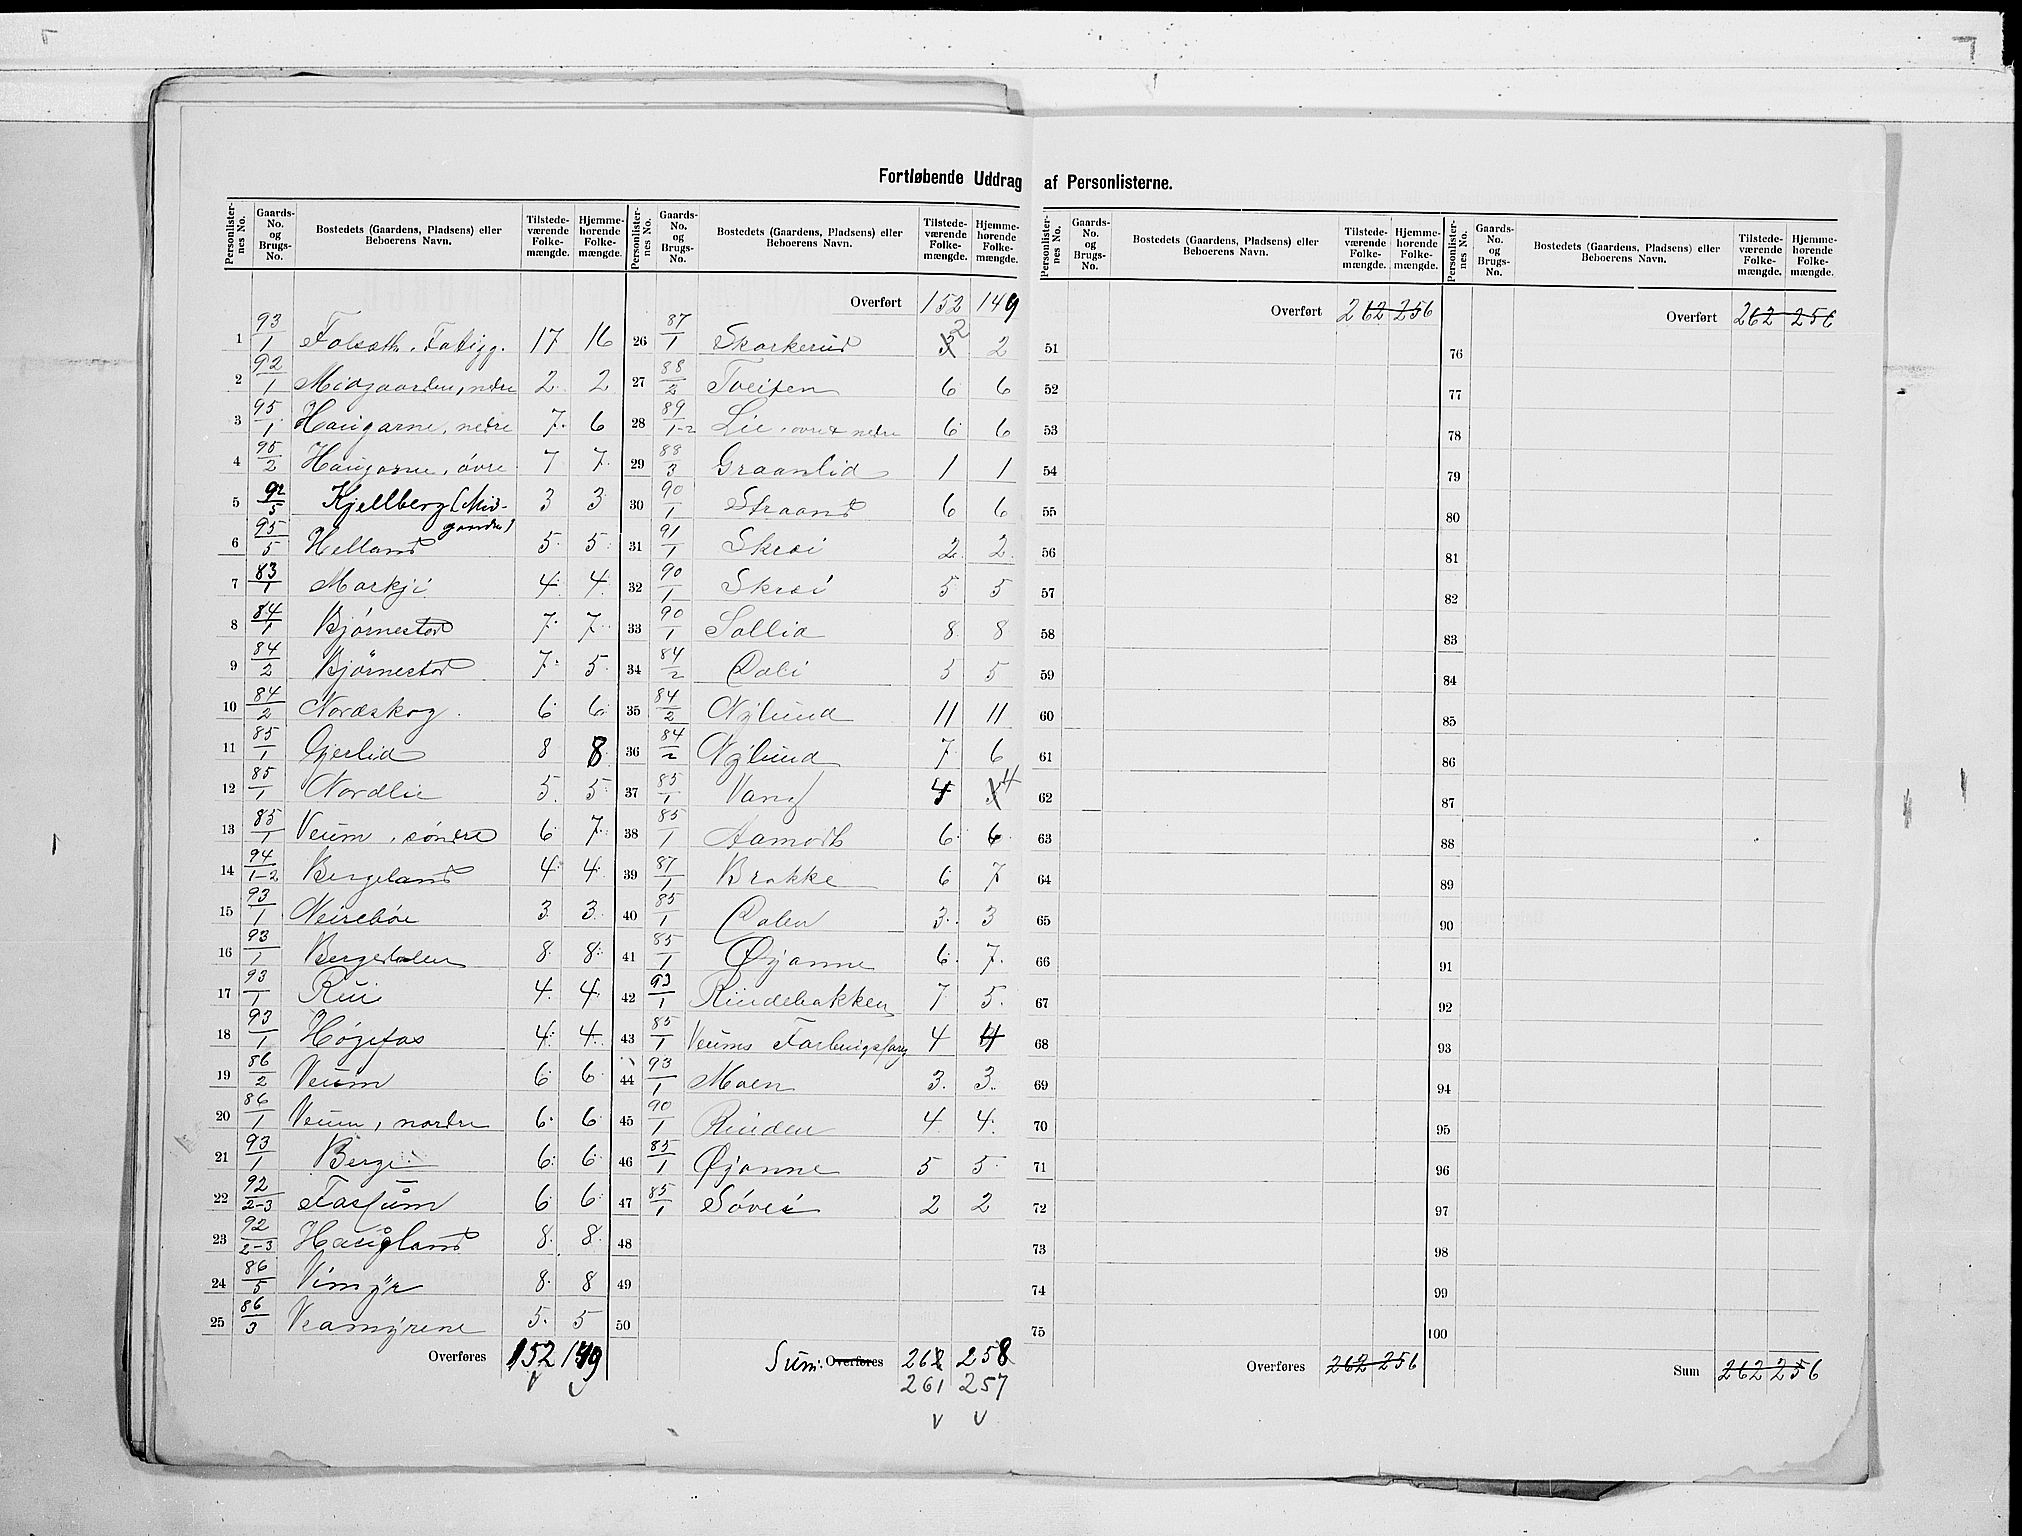 Fortløbende Uddrag af Personlisterne.
Personlisternes No. Gaards-No. og Brugs-No. Bostedets (Gaardens, Pladsens) eller Beboerens Navn. Tilstedeværende Folkemængde. Hjemmehørende Folkemængde.
1 93/1 17 16
2 92/1 Midgaarden, nedre 2 2
3 95/1 Haugarne, nedre 7 6
4 95/2 Haugarne, øvre 7 7
5 92/5 Kjellberg (Midgarden) 3 3
6 95/5 Helland 5 5
7 83/1 Markji 4 4
8 84/1 Bjørnestad 7 7
9 84/2 Bjørnestad 7 5
10 84/2 Nordskog 6 6
11 85/1 Gjerlid 8 8
12 85/1 Nordlie 5 5
13 85/1 Veum, søndre 6 7
14 94/1-2 Bergeland 4 4
15 93/1 Neirebøe 3 3
16 93/1 Bergedalen 8 8
17 93/1 Rui 4 4
18 93/1 Høgefos 4 4
19 86/2 Veum 6 6
20 86/1 Veum, nordre 6 6
21 93/1 Berge 6 6
22 92/2-3 6 6
23 92/2-3 Haugland 8 8
24 86/5 Vimyr 8 8
25 86/3 Veamyrene 5 5
Overføres 152 149
Personlisternes No. Gaards-No. og Brugs-No. Bostedets (Gaardens, Pladsens) eller Beboerens Navn. Tilstedeværende Folkemængde. Hjemmehørende Folkemængde.
Overført 152 149
26 87/1 Skorkerud 2 2
27 88/2 Tveiten 6 6
28 89/1-2 Lie, øvre & nedre 6 6
29 88/3 Graanlid 1 1
30 90/1 Straand 6 6
31 91/1 Skrei 2 2
32 90/1 Skrei 5 5
33 90/1 Sollid 8 8
34 84/2 Dali 5 5
35 84/2 Nylund 11 11
36 84/2 Nylund 7 6
37 85/1 Vang 4 4
38 85/1 Aamodt 6 6
39 87/1 Brokke 6 7
40 85/1 Dalen 3 3
41 85/1 Øyanne 6 7
42 93/1 Rindebakken 7 5
43 85/1 Veums 4 4
44 93/1 Moen 3 3
45 90/1 Rinden 4 4
46 85/1 Øyanne 5 5
47 85/1 Søvei 2 2
48
49
50
Sum: Overføres 262 258
261 257
v v
Personlisternes No. Gaards-No. og Brugs-No. Bostedets (Gaardens, Pladsens) eller Beboerens Navn. Tilstedeværende Folkemængde. Hjemmehørende Folkemængde.
Overført 262 256
51
52
53
54
55
56
57
58
59
60
61
62
63
64
65
66
67
68
69
70
71
72
73
74
75
Overføres 262 256
Personlisternes No. Gaards-No. og Brugs-No. Bostedets (Gaardens, Pladsens) eller Beboerens Navn. Tilstedeværende Folkemængde. Hjemmehørende Folkemængde.
Overført 262 256
76
77
78
79
80
81
82
83
84
85
86
87
88
89
90
91
92
93
94
95
96
97
98
99
100
Sum 262 256